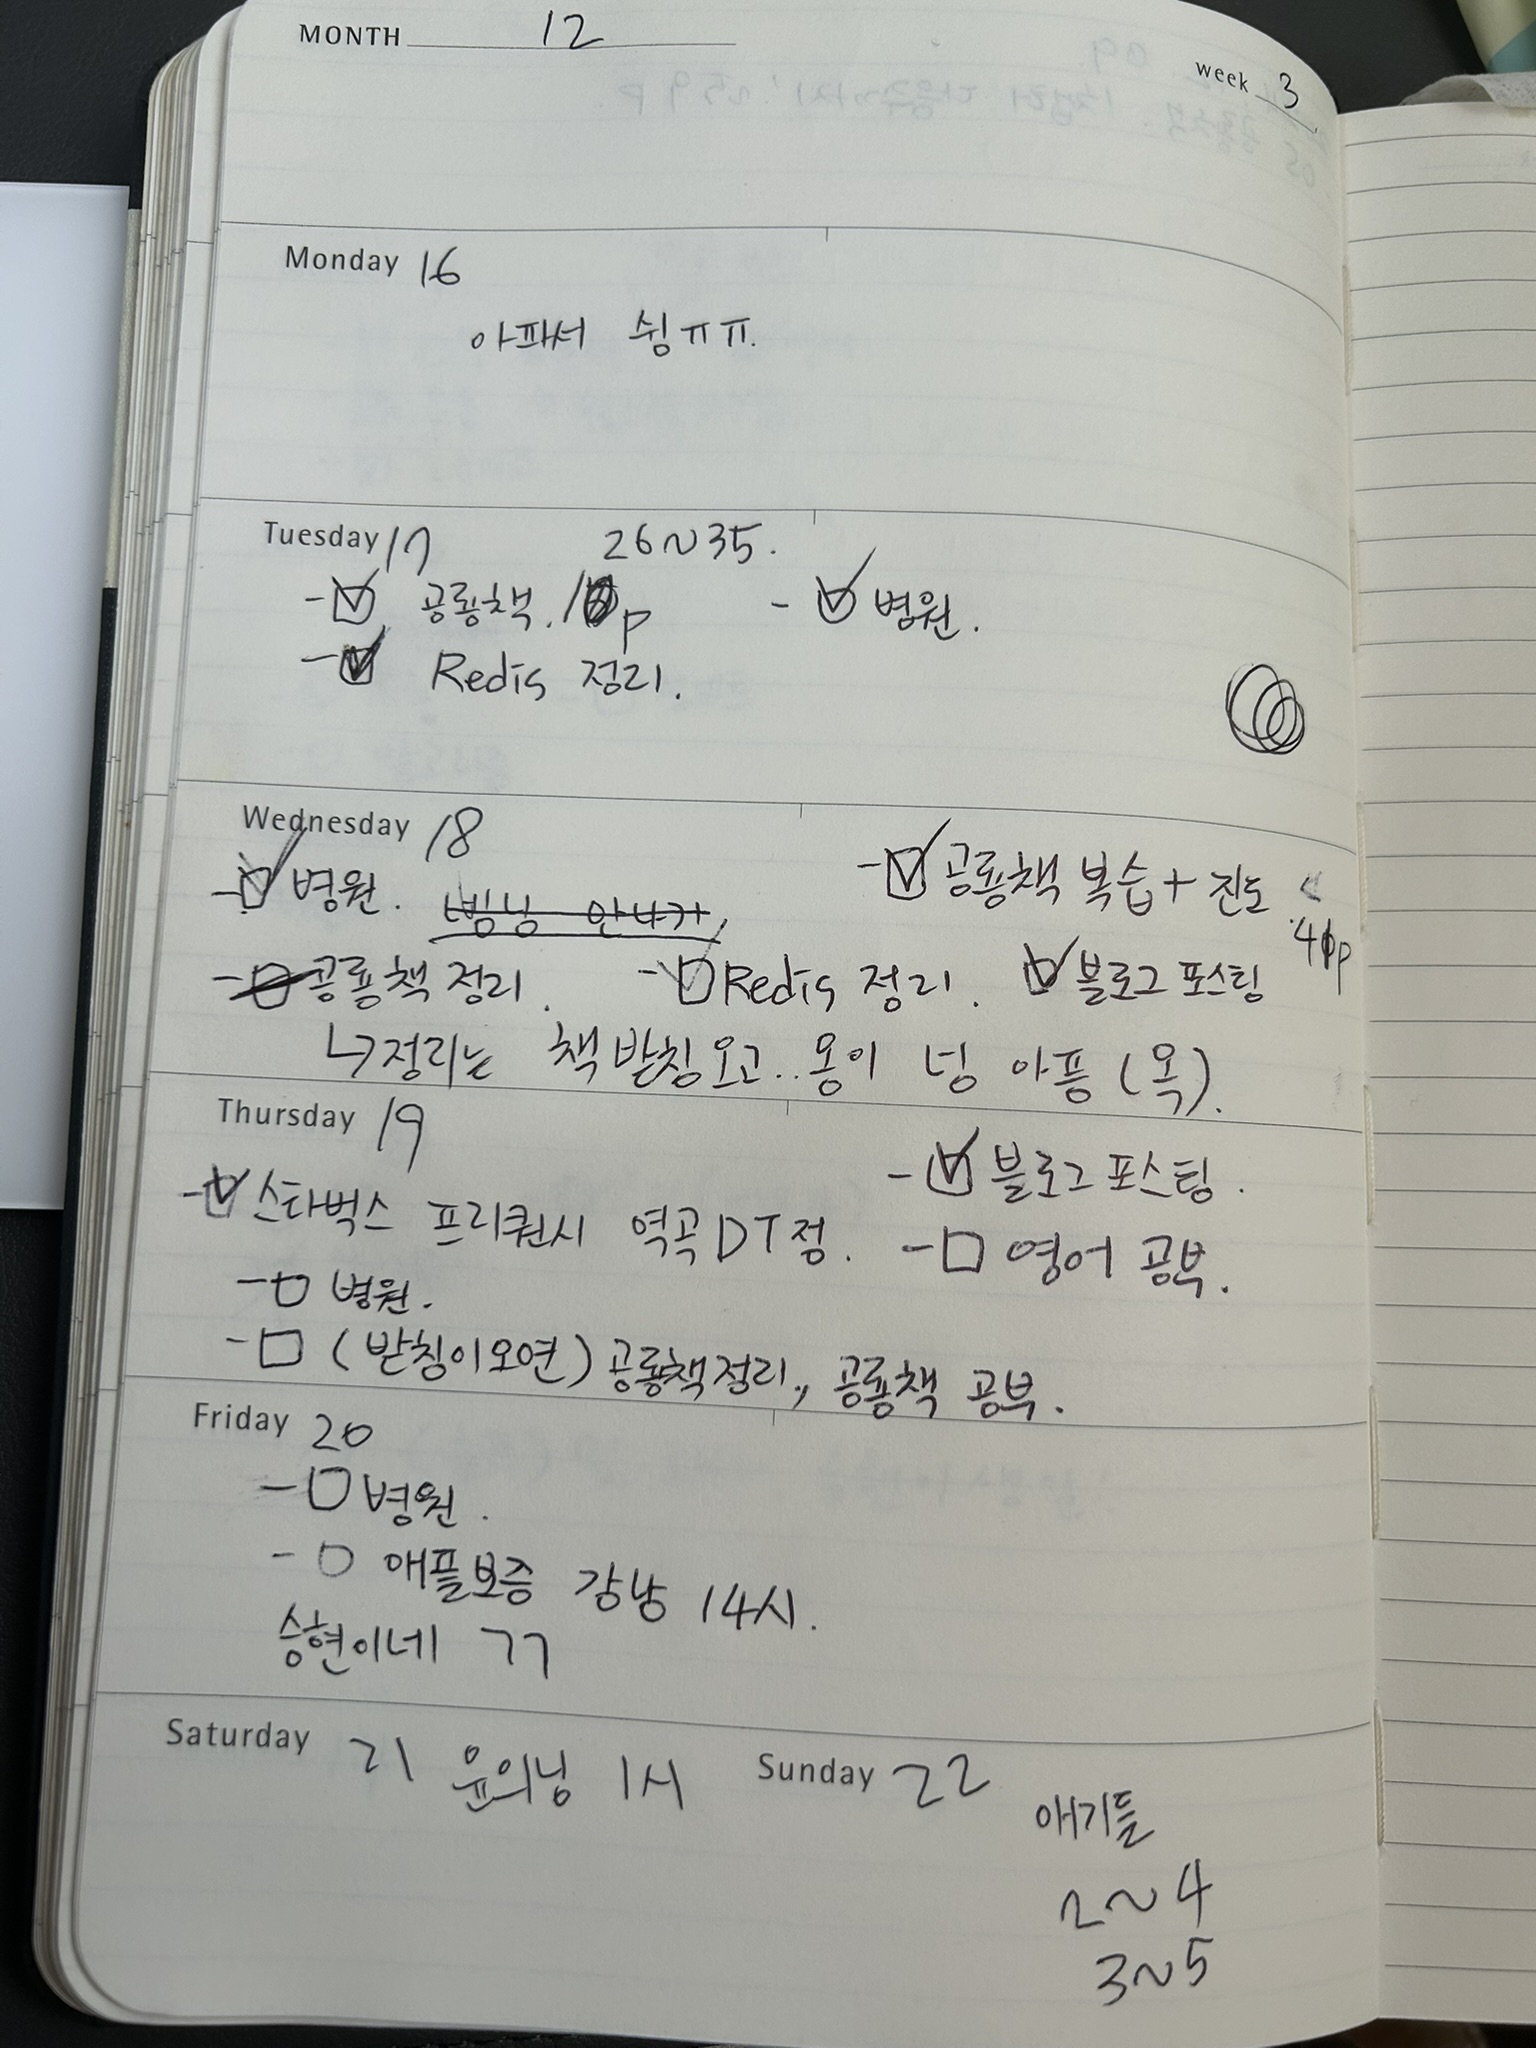 MONTH 12
week 3
Monday 16
아파서 쉼ㅠㅠ.
Tuesday 17
26~35.
- 공룡책. p
- 병원.
- Redis 정리.
Wednesday 18
- 병원.
- 공룡책 복습 + 진도
- 공룡책 정리.
- Redis 정리.
블로그 포스팅
↳정리는 책받침오고.. 몽이 넘 아픔 (목).
Thursday 19
- 스타벅스 프리퀀시 역곡DT점.
- 블로그 포스팅.
- 영어 공부.
- 병원.
- (받침이오면) 공룡책정리, 공룡책 공부.
Friday 20
- 병원.
- 애플보증 강남 14시.
승현이네 ㄱㄱ
Saturday 21 윤의닝 1시
Sunday 22
애기들
2~4
3~5